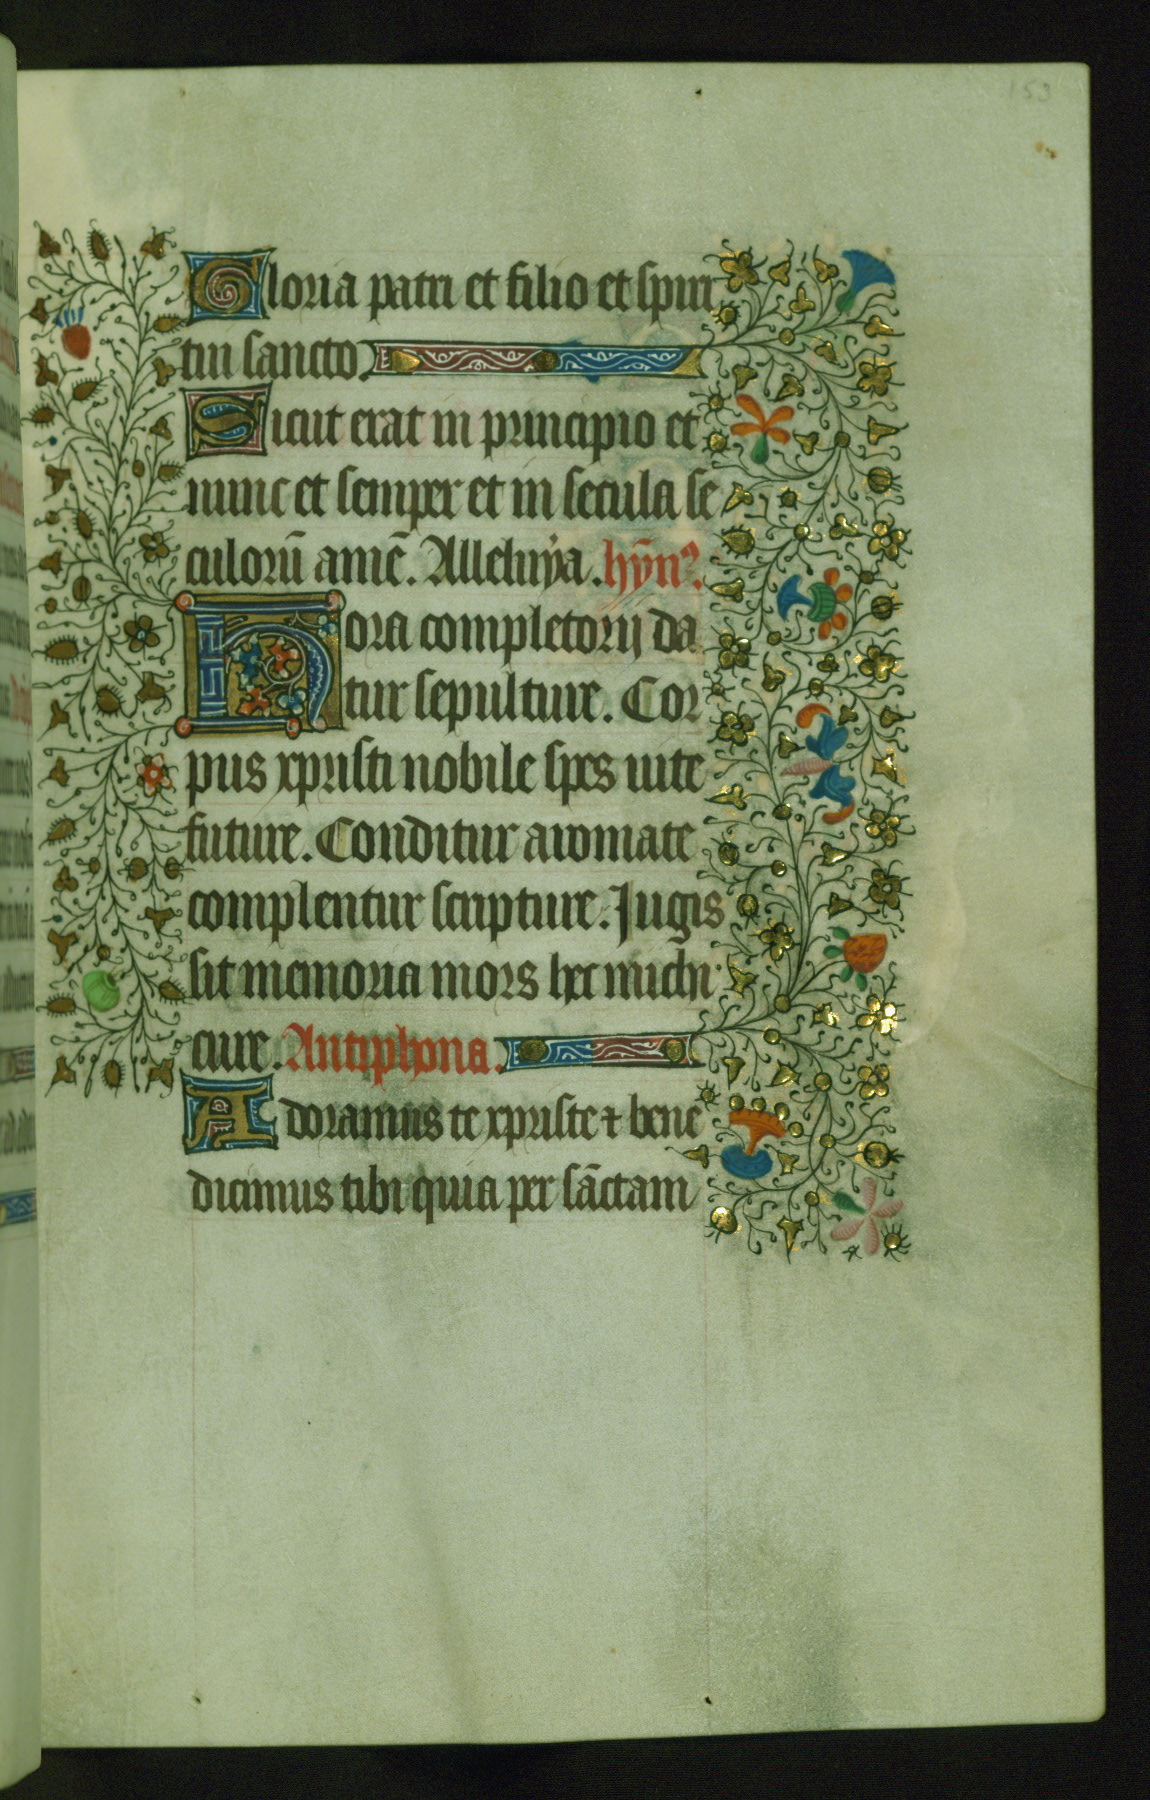 153
Gloria patri et filio et spiri
tui sancto.
Sicut erat in principio et
nunc et semper et in secula se
culorū amē. Alleluya. hȳnꝰ.
Hora completorij da
tur sepulture. Cor
pus xpristi nobile spes uite
future. Conditur aromate
complentur scripture. Jugis
sit memoria mors hec michi
cure. Antiphona.
Adoramus te xpriste ⁊ bene
dicimus tibi quia per sāctam